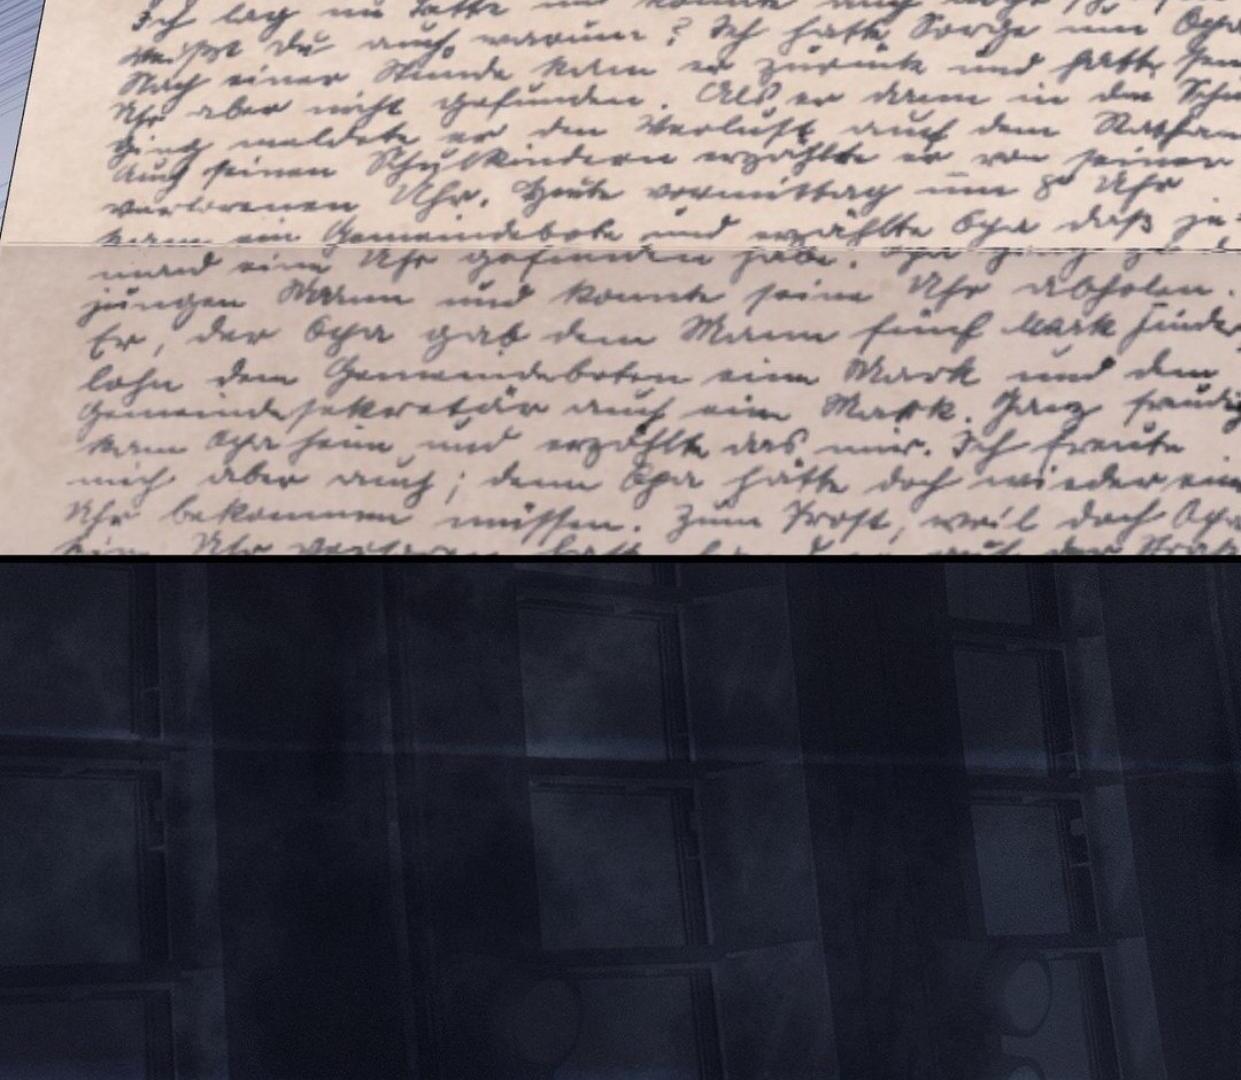 Ich lag im Bette und konnte auch nicht
Weißt du auch, warum? Ich hatte Sorge um Opa
Nach einer Stunde kam er zurück und hatte seine
Uhr aber nicht gefunden. Als er dann in die
ging meldete er den Verlust auf dem
Auch seinen Schulkindern erzählte er von seiner
verlorenen Uhr. Heute vormittag um 8 Uhr
kam ein Gemeindebote und erzählte Opa daß je-
mand eine Uhr gefunden habe. Opa ging
jungen Mann und konnte seine Uhr abholen.
Er, der Opa gab dem Mann fünf Mark Finder
lohn dem Gemeindeboten eine Mark und dem
Gemeindesekretär auch eine Mark. Ganz freudig
kam Opa heim und erzählte das mir. Ich freute
mich aber auch; denn Opa hätte doch wieder eine
Uhr bekommen müssen. Zum Trost, weil doch Opa
Uhr verloren